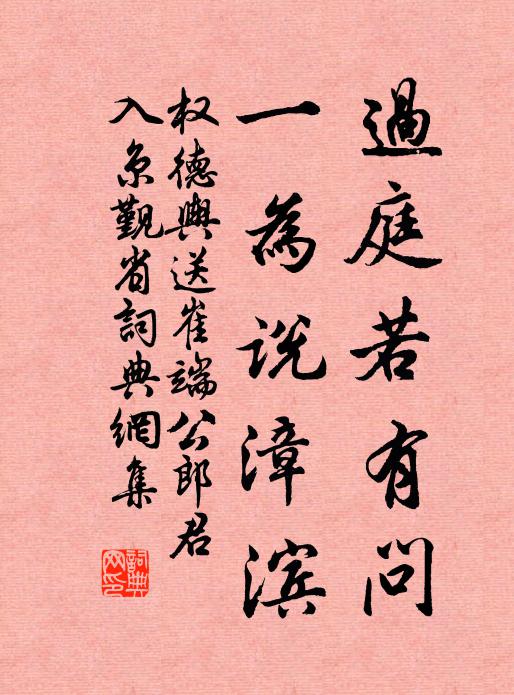 過庭若有問
一為説漳滨
权德輿送崔端公郎君
入京觐省詞典網集
詞典網印